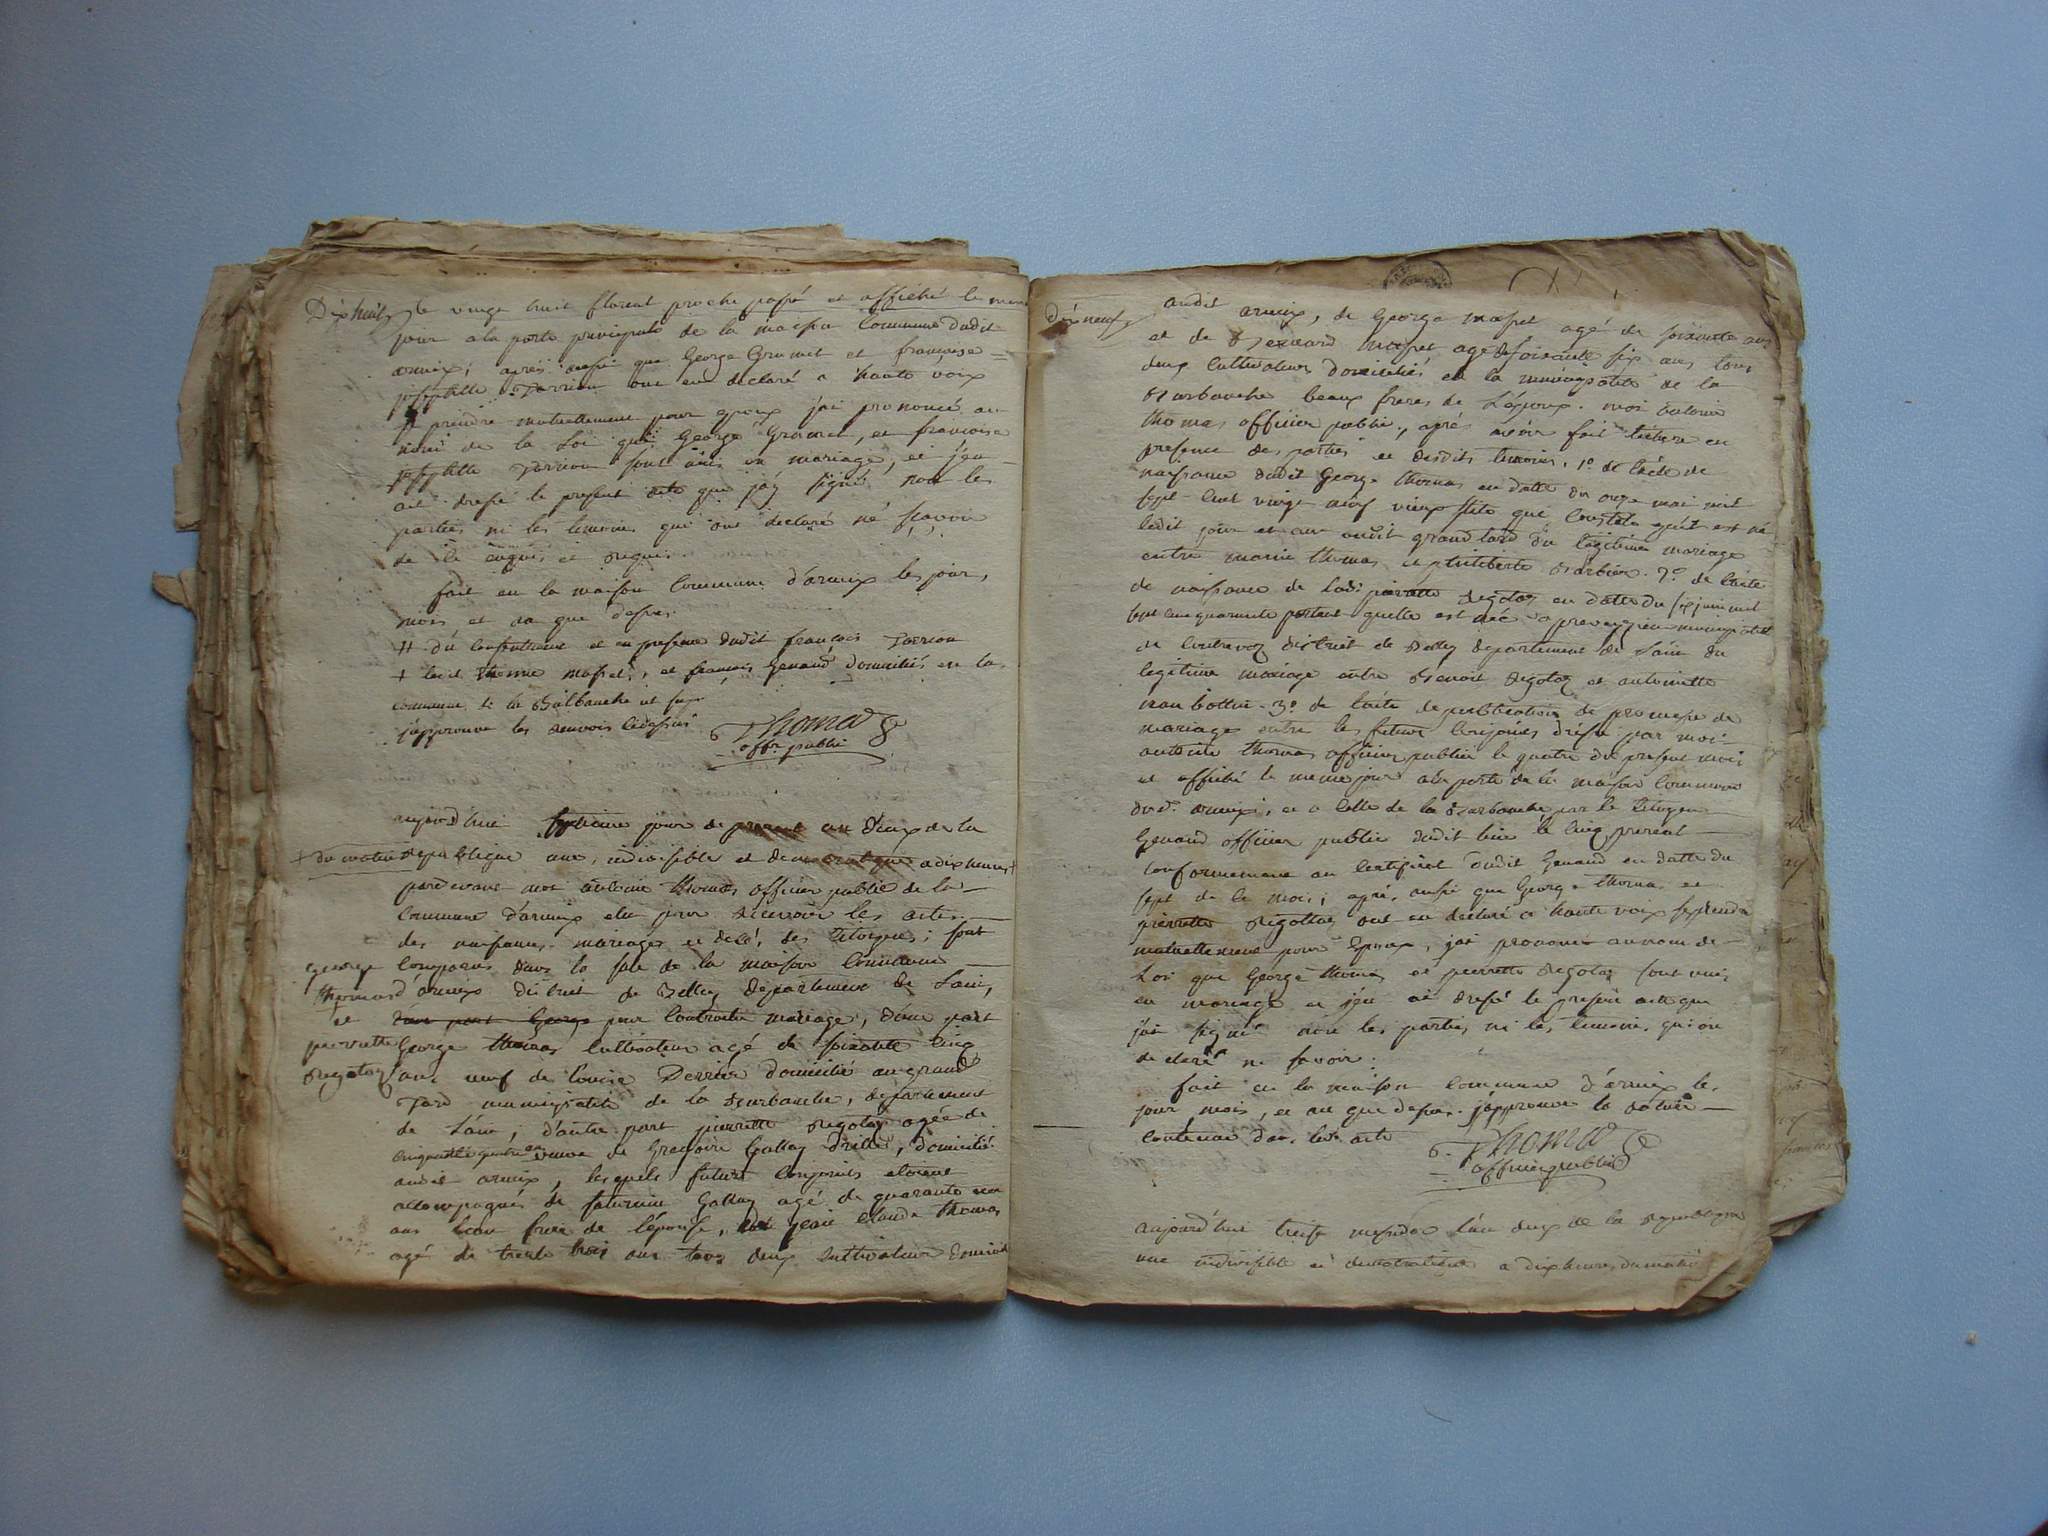 Dix huit
le vingt huit floreal proche passé et affiché le meme
jour a la porte principale de la maison Commune dudit
armix; après aussi que George Grumet et françoise
josephtte Torrion ont eu declaré a haute voix
se prendre mutuellement pour epoux jai prononcé au
nom de la Loi que George Grumet, et francoise
josephtte Torrion sont unis en mariage, et j'en
ai dressé le present acte que j'ay signé non les
parties ni les temoins qui ont declaré ne sçavoir
de ce enquis et requis.
fait en la maison Commune d'armix les jour,
mois et an que dessus
# du consentement et en presence dudit françois Torrion
+ et françois Genand domiciliés en la
commune de la Burbanche
j'approuve les renvois cidessus
Thomas
offr public
aujourd'hui jour de an deux de la
+ du matin
republique une, indivisible et democratique a dix heures +
pardevant moi antoine thomas officier public de la
Commune d'armix elu pour recevoir les actes
des naissances mariages et decé, des Citoyens; sont
George
thomas
et
pierrette
Regotaz
Comparus dans la sale de la maison Commune
d'armix district de Belley departement de Lain,
dune part George pour Contracter mariage, dune part
George thomas cultivateur agé de soixante cinq
ans veuf de Louise Derrier domicilié au grand
Tard municipalité de la Burbanche, departement
de Lain, d'autre part pierrette Regotaz agée de
cinquante quatre ans veuve de Gregoire Gallay , domicilié
audit armix, lesquels futurs conjoints etoient
accompagnés de saturnin Gallay agé de quarante
ans beau frere de l'épouse, jean claude thomas
agé de trente trois ans tous deux cultivateur
Dix neuf
audit armix, de George masset agé de soixante ans
et de Bernard masset agé de soixante six ans tous
deux cultivateurs domiciliés en la municipalité de la
Burbanche beaux freres de L'époux. moi antoine
thomas officier public, après avoir fait lecture en
presence des parties et desdits temoins, 1º de lacte de
naissance dudit George thomas en datte du onze mai mil
sept cent vingt neuf vieux stile que est né
ledit jour et an audit grand tard du legitime mariage
entre thomas et philiberte Barbier. 2º de lacte
de naissance de lad. pierrette Regotaz en datte du six juin mil
sept cent quarante portant quelle est née a municipalité
de Contrevoz district de Belley departement de Lain du
legitime mariage entre Benoit Regotaz et antoinette
3º de lacte de publication de promesse de
mariage entre les futurs Conjoints dressé par moi
antoine thomas officier public le quatre du present mois
et affiché le meme jour a la porte de la maison Commune
dud. armix, et a Celle de la Burbanche par le Citoyen
Genand officier public dudit lieu le cinq prereal
conformement au Certificat dudit Genand en datte du
sept de ce mois, après aussi que George thomas et
pierrette Regottaz ont eu declaré a haute voix se prendre
mutuellement pour Epoux, jai prononcé au nom de
Loi que George thomas et pierrette Regotaz sont unis
en mariage et j'en ai dressé le present acte que
j'ai signé non les parties ni les temoins qui on
declaré ne savoir.
fait en la maison Commune d'armix les
jour mois, et an que dessus. j'approuve la rature
contenue dans led. acte
Thomas
officier public
aujourd'hui treise messidor l'an deux de la Republique
une indivisible et democratique a dix heures du matin